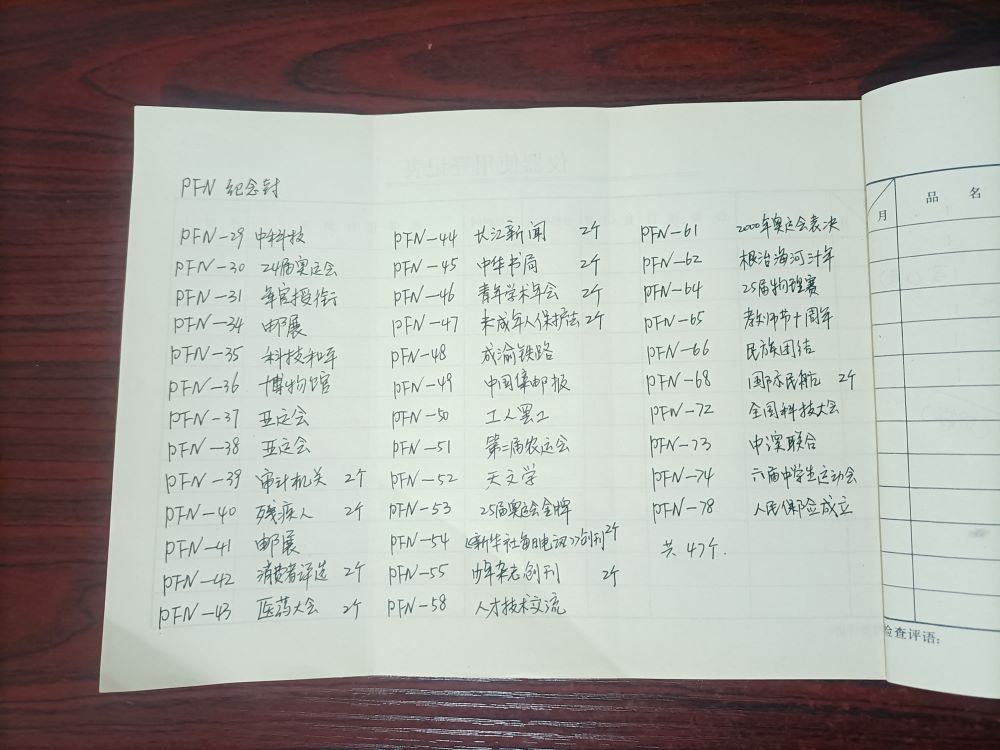 PFN 纪念封
PFN-29 中科技
PFN-30 24届奥运会
PFN-31 军官授衔
PFN-34 邮展
PFN-35 科技和平
PFN-36 博物馆
PFN-37 亚运会
PFN-38 亚运会
PFN-39 审计机关 2个
PFN-40 残疾人 2个
PFN-41 邮展
PFN-42 消费者评选 2个
PFN-43 医药大会 2个
PFN-44 长江新闻 2个
PFN-45 中华书局 2个
PFN-46 青年学术年会 2个
PFN-47 未成年人保护法 2个
PFN-48 成渝铁路
PFN-49 中国集邮报
PFN-50 工人罢工
PFN-51 第二届农运会
PFN-52 天文学
PFN-53 25届奥运会金牌
PFN-54 《新华社每日电讯》创刊 2个
PFN-55 少年杂志创刊 2个
PFN-58 人才技术交流
PFN-61 2000年奥运会表决
PFN-62 根治海河卅年
PFN-64 25届物理赛
PFN-65 教师节十周年
PFN-66 民族团结
PFN-68 国际民航 2个
PFN-72 全国科技大会
PFN-73 中澳联合
PFN-74 六届中学生运动会
PFN-78 人民保险成立
共47个.
月
品名
检查评语: